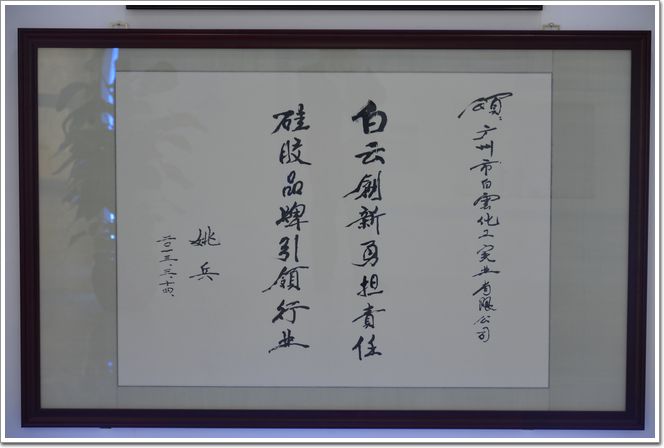 颂:广州市白雲化工实业有限公司
白云創新勇担責任
硅胶品牌引领行业
姚兵
二〇一三.三.十四.